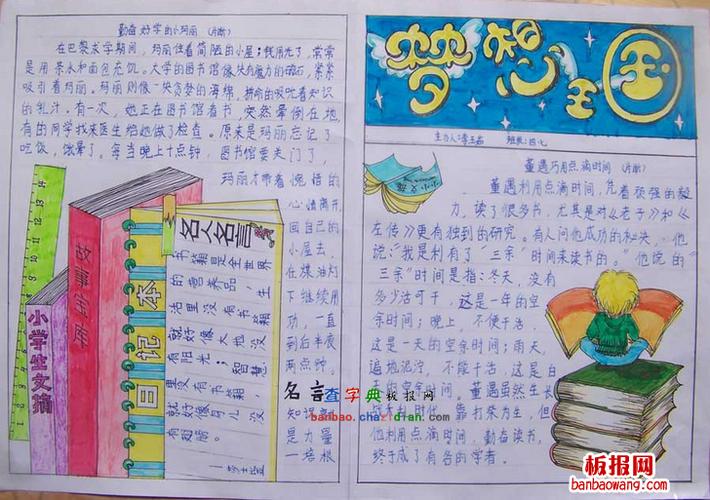 勤奋好学的小玛丽（片断）
在巴黎求学期间，玛丽住着简陋的小屋；钱用光了，常常
是用茶水和面包充饥。大学的图书馆像块有魔力的磁石，紧紧
吸引着玛丽。玛丽则像一块贪婪的海绵，拼命的吸吮着知识
的乳汁。有一次，她正在图书馆看书，突然晕倒在地，
有的同学找来医生给她做了检查。原来是玛丽忘记了
吃饭，饿晕了。每当晚上十点钟，图书馆要关门了，
玛丽才带着惋惜的
心情离开，
回自己的
小屋去，
在煤油灯
下继续用
功，一直
到后半夜
两点钟。
名言
知识就
是力量
—培根
小学生文摘
故事宝库
日记本
名人名言
书籍是全世界
的营养品，生
活里没有书籍
就好像大地没
有阳光；智慧
里没有书籍，
就好像鸟儿没
有翅膀。
—莎士比亚
梦想王国
主办人：李玉茹 班级：四·七
董遇巧用点滴时间（片断）
董遇利用点滴时间，凭着顽强的毅
力，读了很多书，尤其是对《老子》和《
左传》更有独到的研究。有人问他成功的秘诀，他
说：“我是利有了“三余”时间来读书的。”他说的“
三余”时间是指：冬天，没有
多少活可干，这是一年的空
余时间；晚上，不便干活，
这是一天的空余时间；雨天，
遍地泥泞，不能干活，这是白
天的空余时间。董遇虽然生长
他利用点滴时间，勤奋读书，
终于成了有名的学者。
查字典板报网
banbao.chazidian.com
板报网
banbaowang.com